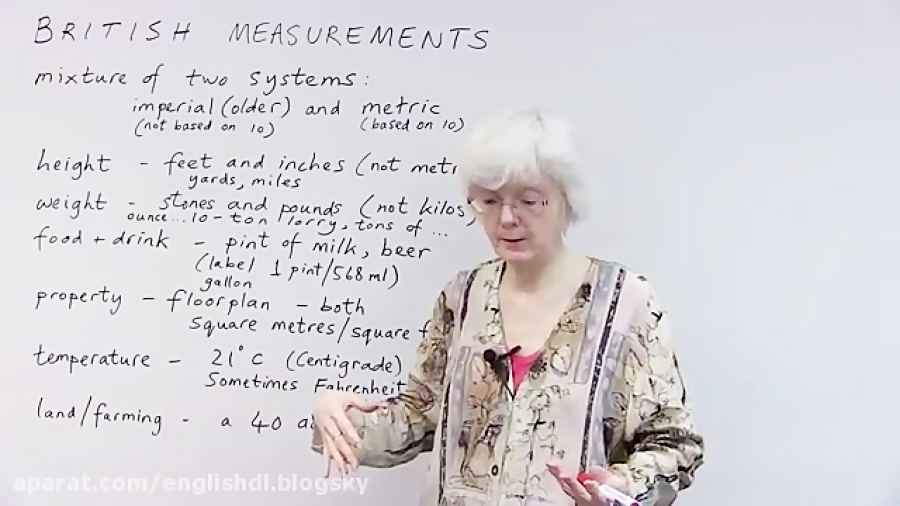 BRITISH MEASUREMENTS
mixture of two systems:
imperial (older) and metric
(not based on 10) (based on 10)
height - feet and inches (not metr
yards, miles
weight - stones and pounds (not kilos,
ounce... 10-ton lorry, tons of ...
food + drink - pint of milk, beer
(label 1 pint/568 ml)
gallon
property - floorplan - both
square metres/square f
temperature - 21°C (Centigrade)
Sometimes Fahrenheit
land/farming - a 40 a
aparat.com/englishdl.blogsky